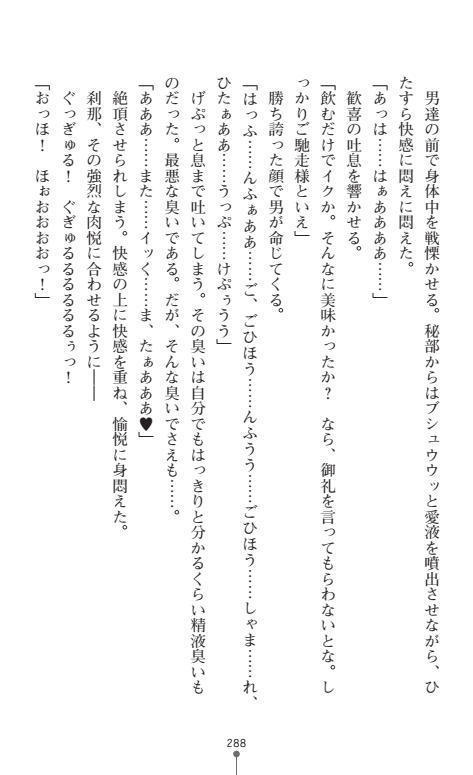 男達の前で身体中を戦慄かせる。秘部からはブシュウウッと愛液を噴出させながら、ひ
たすら快感に悶えに悶えた。
「あっは……はぁああああ……」
歓喜の吐息を響かせる。
「飲むだけでイクか。そんなに美味かったか？　なら、御礼を言ってもらわないとな。し
っかりご馳走様といえ」
勝ち誇った顔で男が命じてくる。
「はっふ……んふぁああ……ご、ごひほう……んふうう……ごひほう……しゃま……れ、
ひたぁああ……うっぷ……けぷぅうう」
げぷっと息まで吐いてしまう。その臭いは自分でもはっきりと分かるくらい精液臭いも
のだった。最悪な臭いである。だが、そんな臭いでさえも……。
「あああ……また……イッく……ま、たぁあああ♥」
絶頂させられしまう。快感の上に快感を重ね、愉悦に身悶えた。
刹那、その強烈な肉悦に合わせるように――
ぐっぎゅる！　ぐぎゅるるるるるぅっ！
「おっほ！　ほぉおおおおっ！」
288